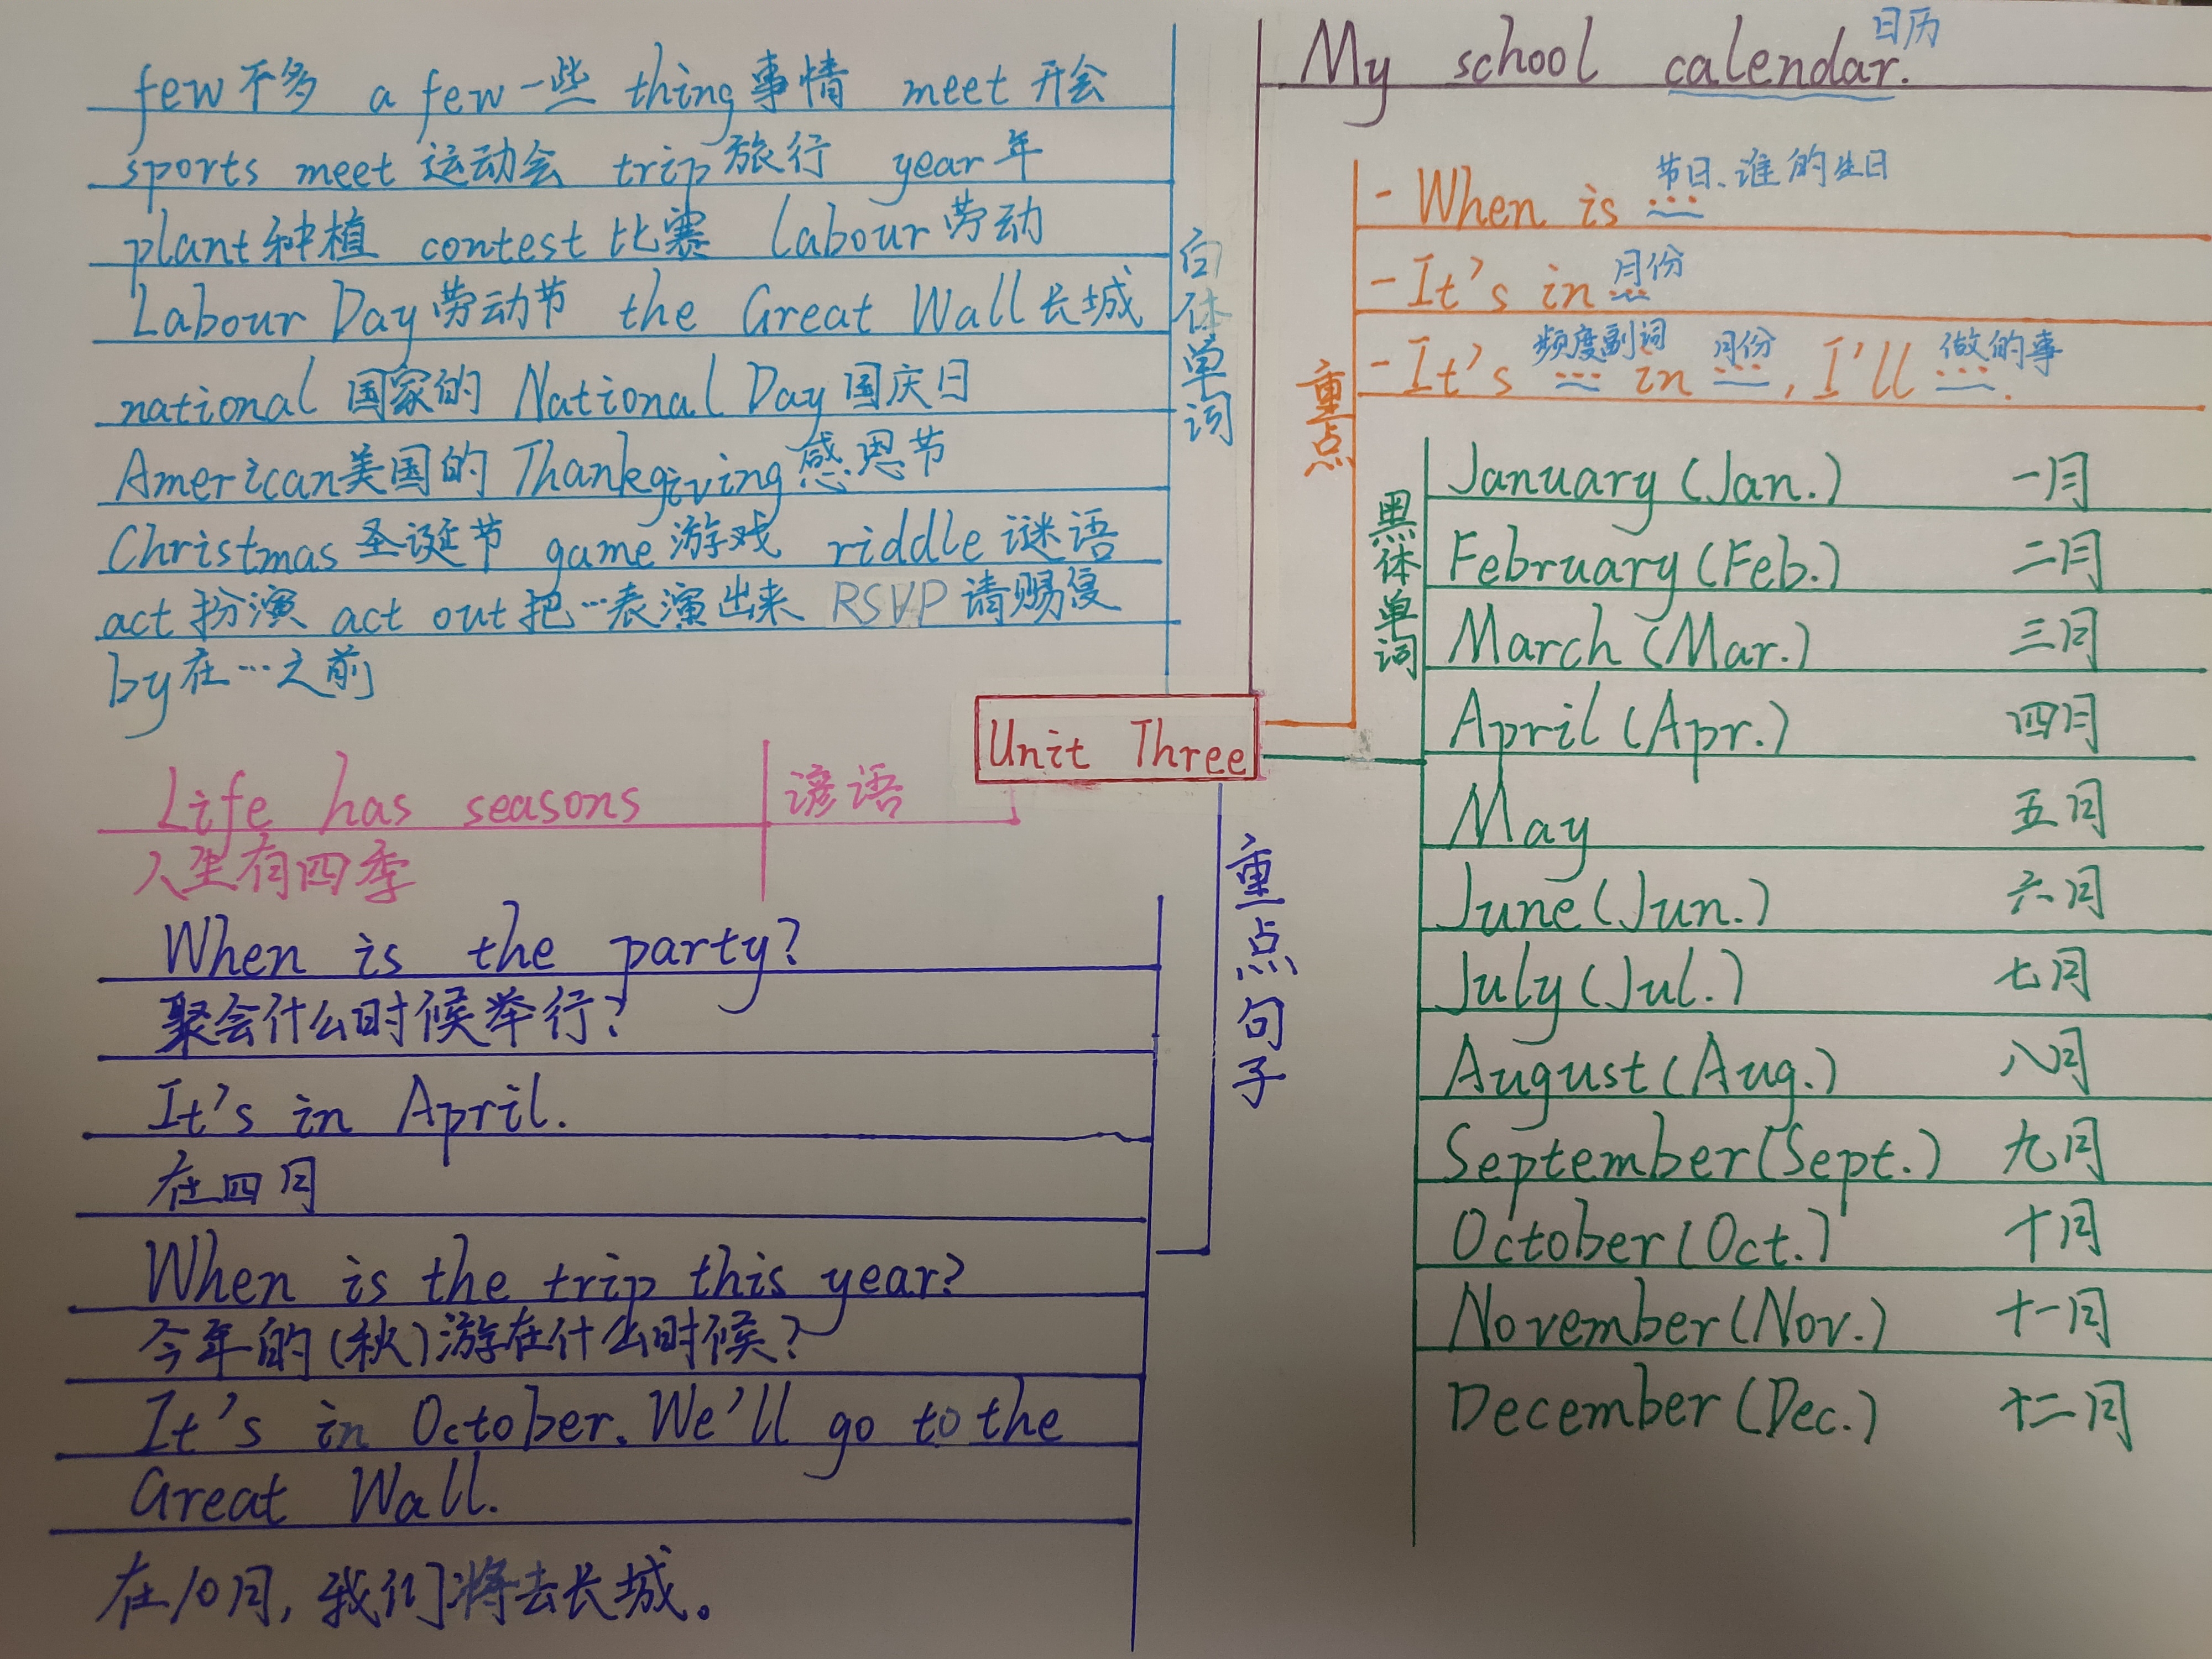 few不多 a few一些 thing事情 meet 开会
sports meet 运动会 trip旅行 year年
plant种植 contest比赛 labour劳动
Labour Day劳动节 the Great Wall长城
national 国家的 National Day国庆日
American美国的 Thankgiving感恩节
Christmas圣诞节 game游戏 riddle谜语
act扮演 act out把…表演出来 RSVP请赐复
by在…之前
白体单词
My school calendar.
日历
重点
节日、谁的生日
- When is ...
月份
- It's in ...
频度副词 月份 做的事
- It's ... in ..., I'll ....
黑体单词
January (Jan.) 一月
February (Feb.) 二月
March (Mar.) 三月
April (Apr.) 四月
May 五月
June (Jun.) 六月
July (Jul.) 七月
August (Aug.) 八月
September (Sept.) 九月
October (Oct.) 十月
November (Nov.) 十一月
December (Dec.) 十二月
Unit Three
谚语
Life has seasons
人生有四季
重点句子
When is the party?
聚会什么时候举行?
It's in April.
在四月
When is the trip this year?
今年的(秋)游在什么时候?
It's in October. We'll go to the
Great Wall.
在10月, 我们将去长城。